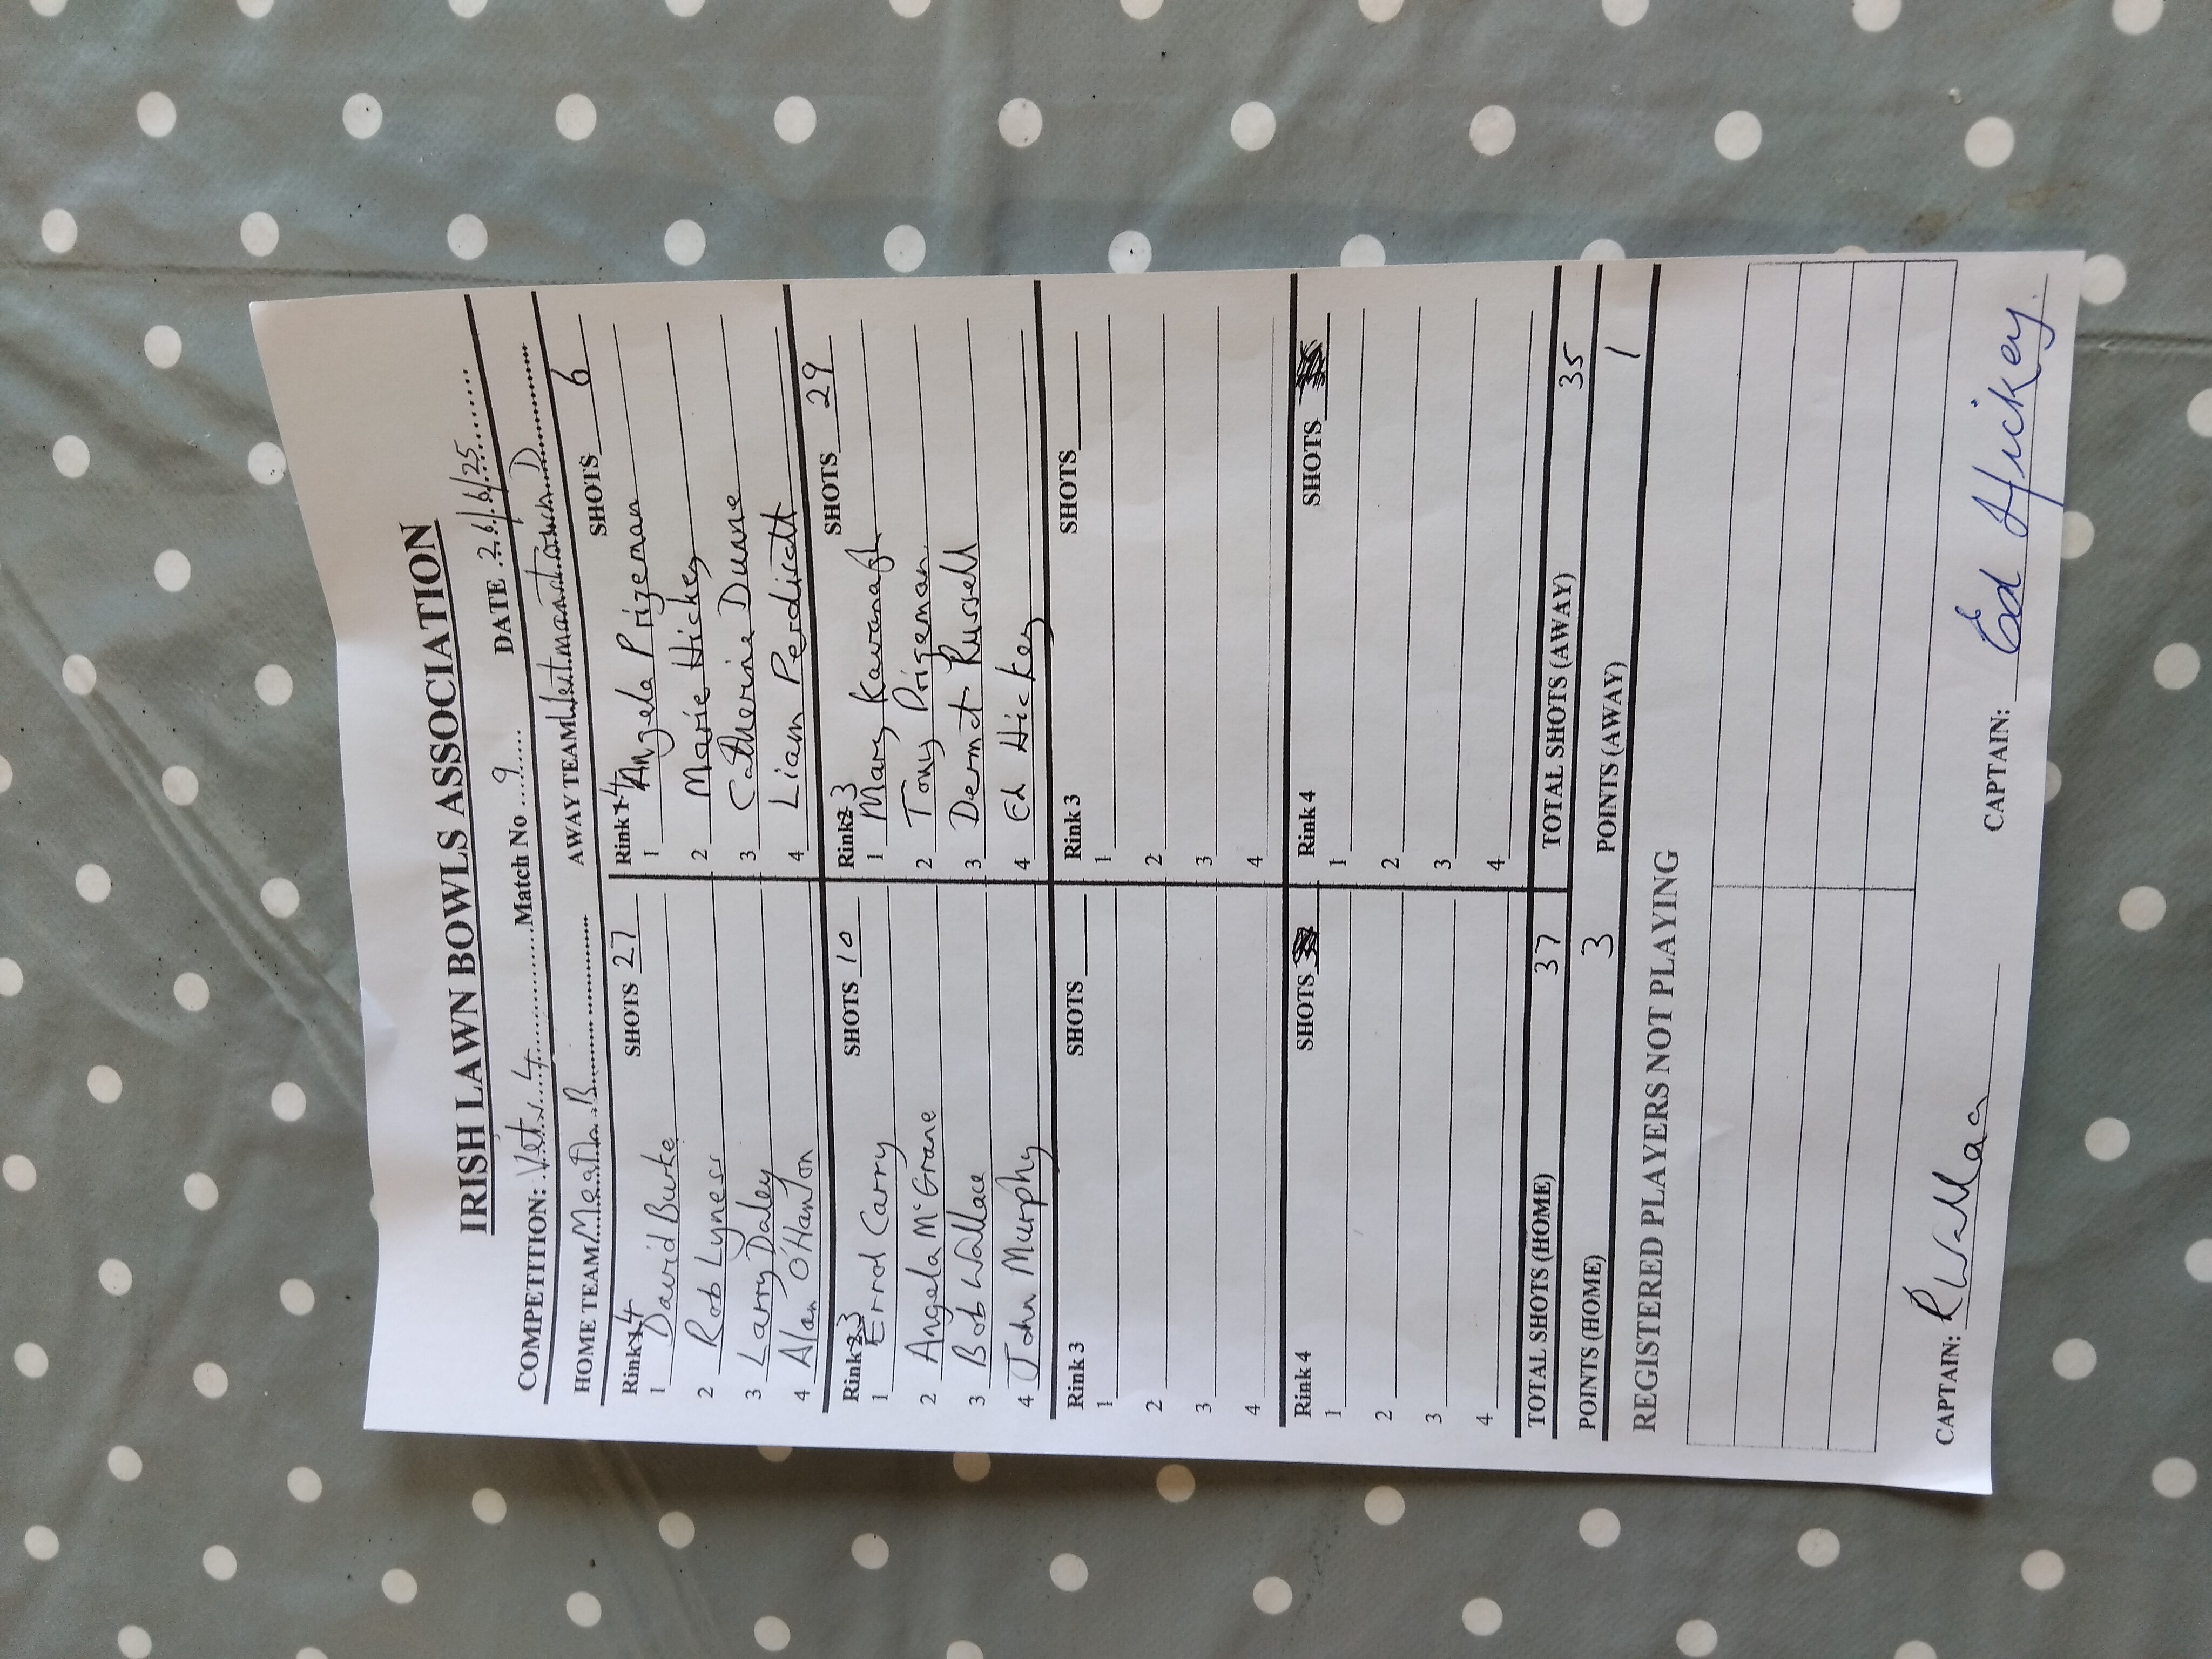 IRISH LAWN BOWLS ASSOCIATION
COMPETITION: Vets 4 Match No 9 DATE 26/6/25
HOME TEAM Meath B AWAY TEAM Westmanstown D
Rink 4 SHOTS 27 Rink 4 SHOTS 6
1 David Burke 1 Angela Prizeman
2 Rob Lyness 2 Marie Hickey
3 Larry Daley 3 Catherine Dunne
4 Alan O'Hanlon 4 Liam Perdisatt
Rink 3 SHOTS 10 Rink 3 SHOTS 29
1 Errol Carry 1 Mary Kavanagh
2 Angela McGrane 2 Tony Prizeman
3 Bob Wallace 3 Dermot Russell
4 John Murphy 4 Ed Hickey
Rink 3 SHOTS Rink 3 SHOTS
1 1
2 2
3 3
4 4
Rink 4 SHOTS Rink 4 SHOTS
1 1
2 2
3 3
4 4
TOTAL SHOTS (HOME) 37 TOTAL SHOTS (AWAY) 35
POINTS (HOME) 3 POINTS (AWAY) 1
REGISTERED PLAYERS NOT PLAYING
CAPTAIN: R Wallace CAPTAIN: Ed Hickey